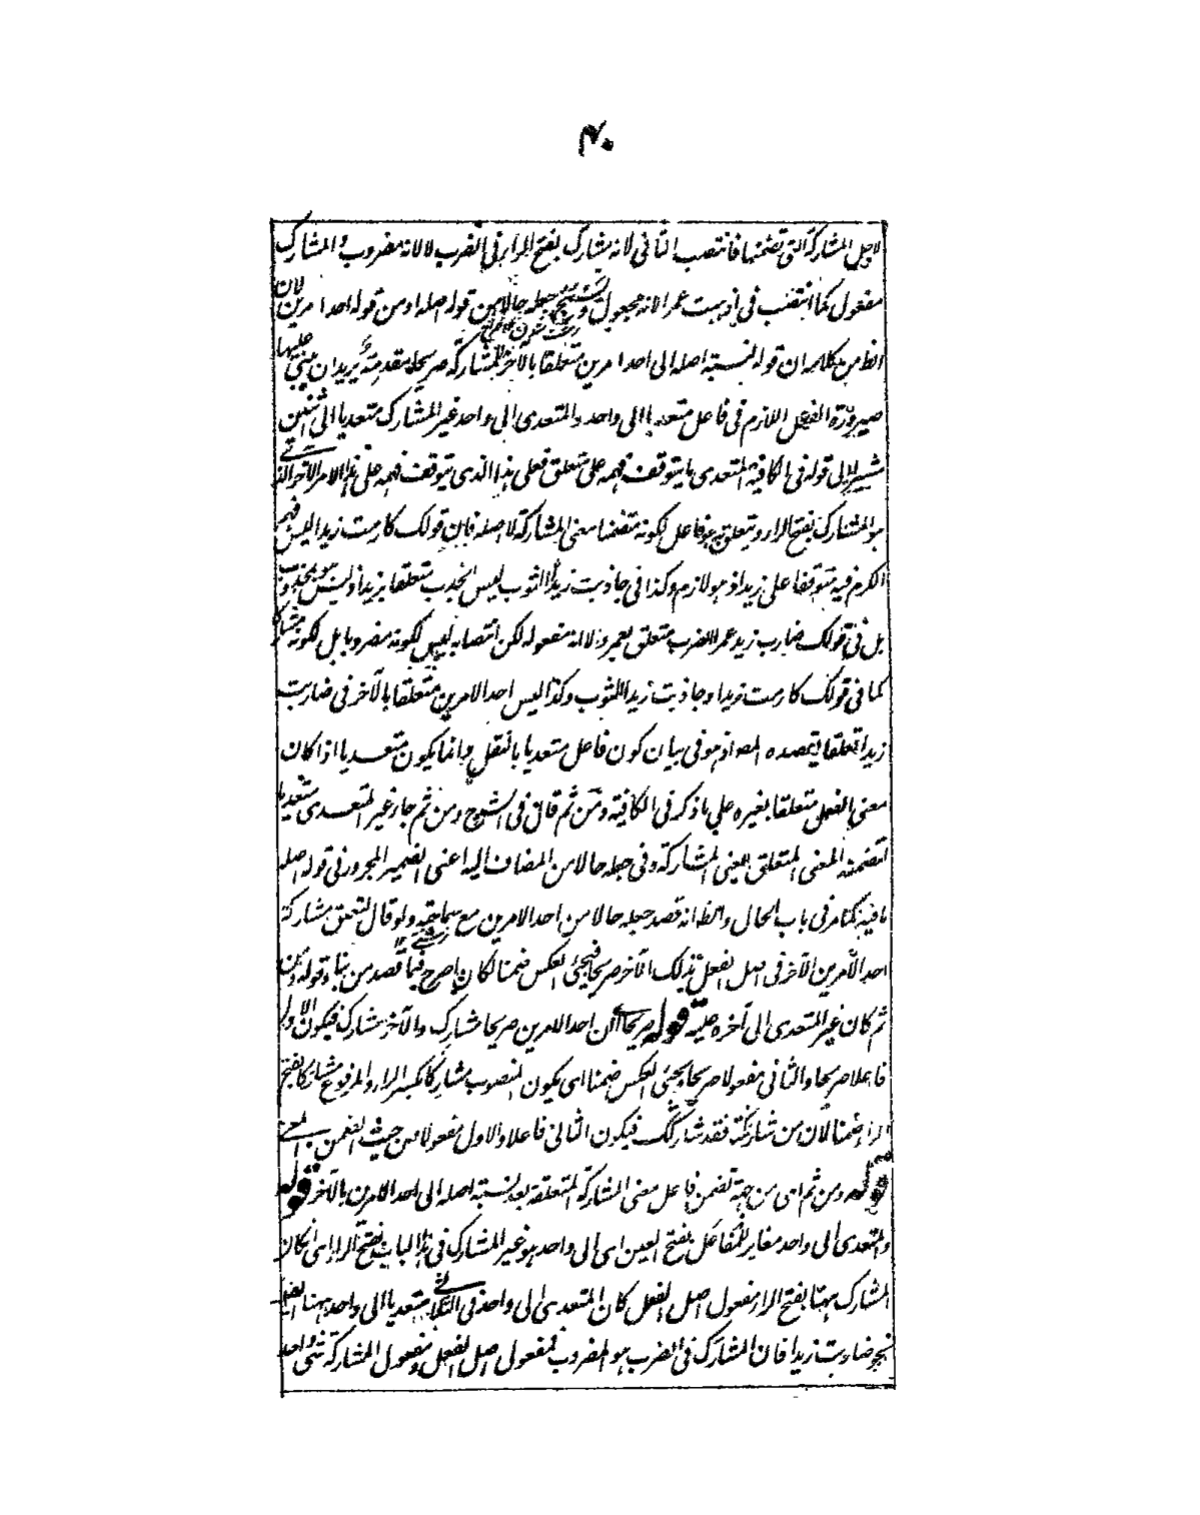 ۴۰
لاجل المشاركة التى تضمنها فانتصب الثانى لانه مشارك بفتح الراء فى الضرب لا لانه مضروب والمشارك
مفعول كما انتصب فى اذهبت عمرا لانه مجعول و جعله حالا من قوله اصله او من قوله احد الامرين لان
الظ من كلامه ان قوله لنسبة اصله الى احد الامرين متعلقا بالآخر للمشاركة صريحا مقدمة يريد ان يبنى عليها
صيرورة الفعل اللازم فى فاعل متعديا الى واحد والمتعدى الى واحد غير المشارك متعديا الى اثنين
مشيرا الى قوله فى الكافية المتعدى ما يتوقف فهمه على متعلق فعلى هذا الذى يتوقف فهمه على هذا الامر الآخر الذى
هو المشارك بفتح الراء ويتعلق به هو فاعل لكونه متضمنا معنى المشاركة لا اصله فان قولك كارمت زيدا ليس فهم
الكرم فيه متوقفا على زيد اذ هو لازم وكذا فى جاذبت زيدا الثوب ليس الجذب متعلقا بزيد اذ ليس هو بمجذوب
بل فى قولك ضارب زيد عمرا الضرب متعلق بعمرو لانه مفعوله لكن انتصابه ليس لكونه مضروبا بل لكونه مشاركا
كما فى قولك كارمت زيدا وجاذبت زيدا الثوب وكذا ليس احد الامرين متعلقا بالآخر فى ضاربت
زيدا تعلقا يقصده المصـ اذ هو فى بيان كون فاعل متعديا بالنقل وانما يكون متعديا اذا كان
معنى الفعل متعلقا بغيره على ما ذكر فى الكافية ومن ثم قال فى الشرح ومن ثم جاء غير المتعدى متعديا
لتضمنه المعنى المتعلق يعنى المشاركة وفى جعله حالا من المضاف اليه اعنى الضمير المجرور فى قوله اصله
ما فيه كما مر فى باب الحال والظ انه قصد جعله حالا من احد الامرين مع ولو قال لتعلق مشاركة
احد الامرين الآخر فى اصل الفعل بذلك الآخر صريحا فيجئ العكس ضمنا لكان اصرح فيما قصد من بناء قوله ومن
ثم كان غير المتعدى الى آخره عليه قوله صريحا اى ان احد الامرين صريحا مشارك والآخر مشارك فيكون الاول
فاعلا صريحا والثانى مفعولا صريحا ويجئ العكس ضمنا اى يكون المنصوب مشاركا بكسر الراء والمرفوع مشاركا بفتح
الراء ضمنا لان من شاركته فقد شاركك فيكون الثانى فاعلا والاول مفعولا من حيث الضمن والمعنى
قوله ومن ثم اى من جهة تضمن فاعل معنى المشاركة المتعلقة بعد نسبة اصله الى احد الامرين بالآخر قوله
والمتعدى الى واحد مغاير للمفاعل بفتح العين اى الى واحد هو غير المشارك فى هذا الباب بفتح الراء اى ان كان
المشارك ههنا بفتح الراء مفعول اصل الفعل كان المتعدى الى واحد فى الثلاثى متعديا الى واحد ههنا ايضا
نحو ضاربت زيدا فان المشارك فى الضرب هو المضروب فمفعول اصل الفعل ومفعول المشاركة شئ واحد